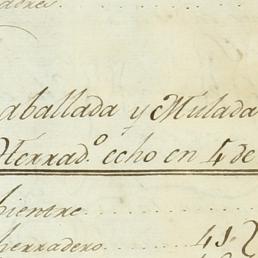 aballada y Mulada
Herrad.º echo en 4 de
bientre
herradero 41